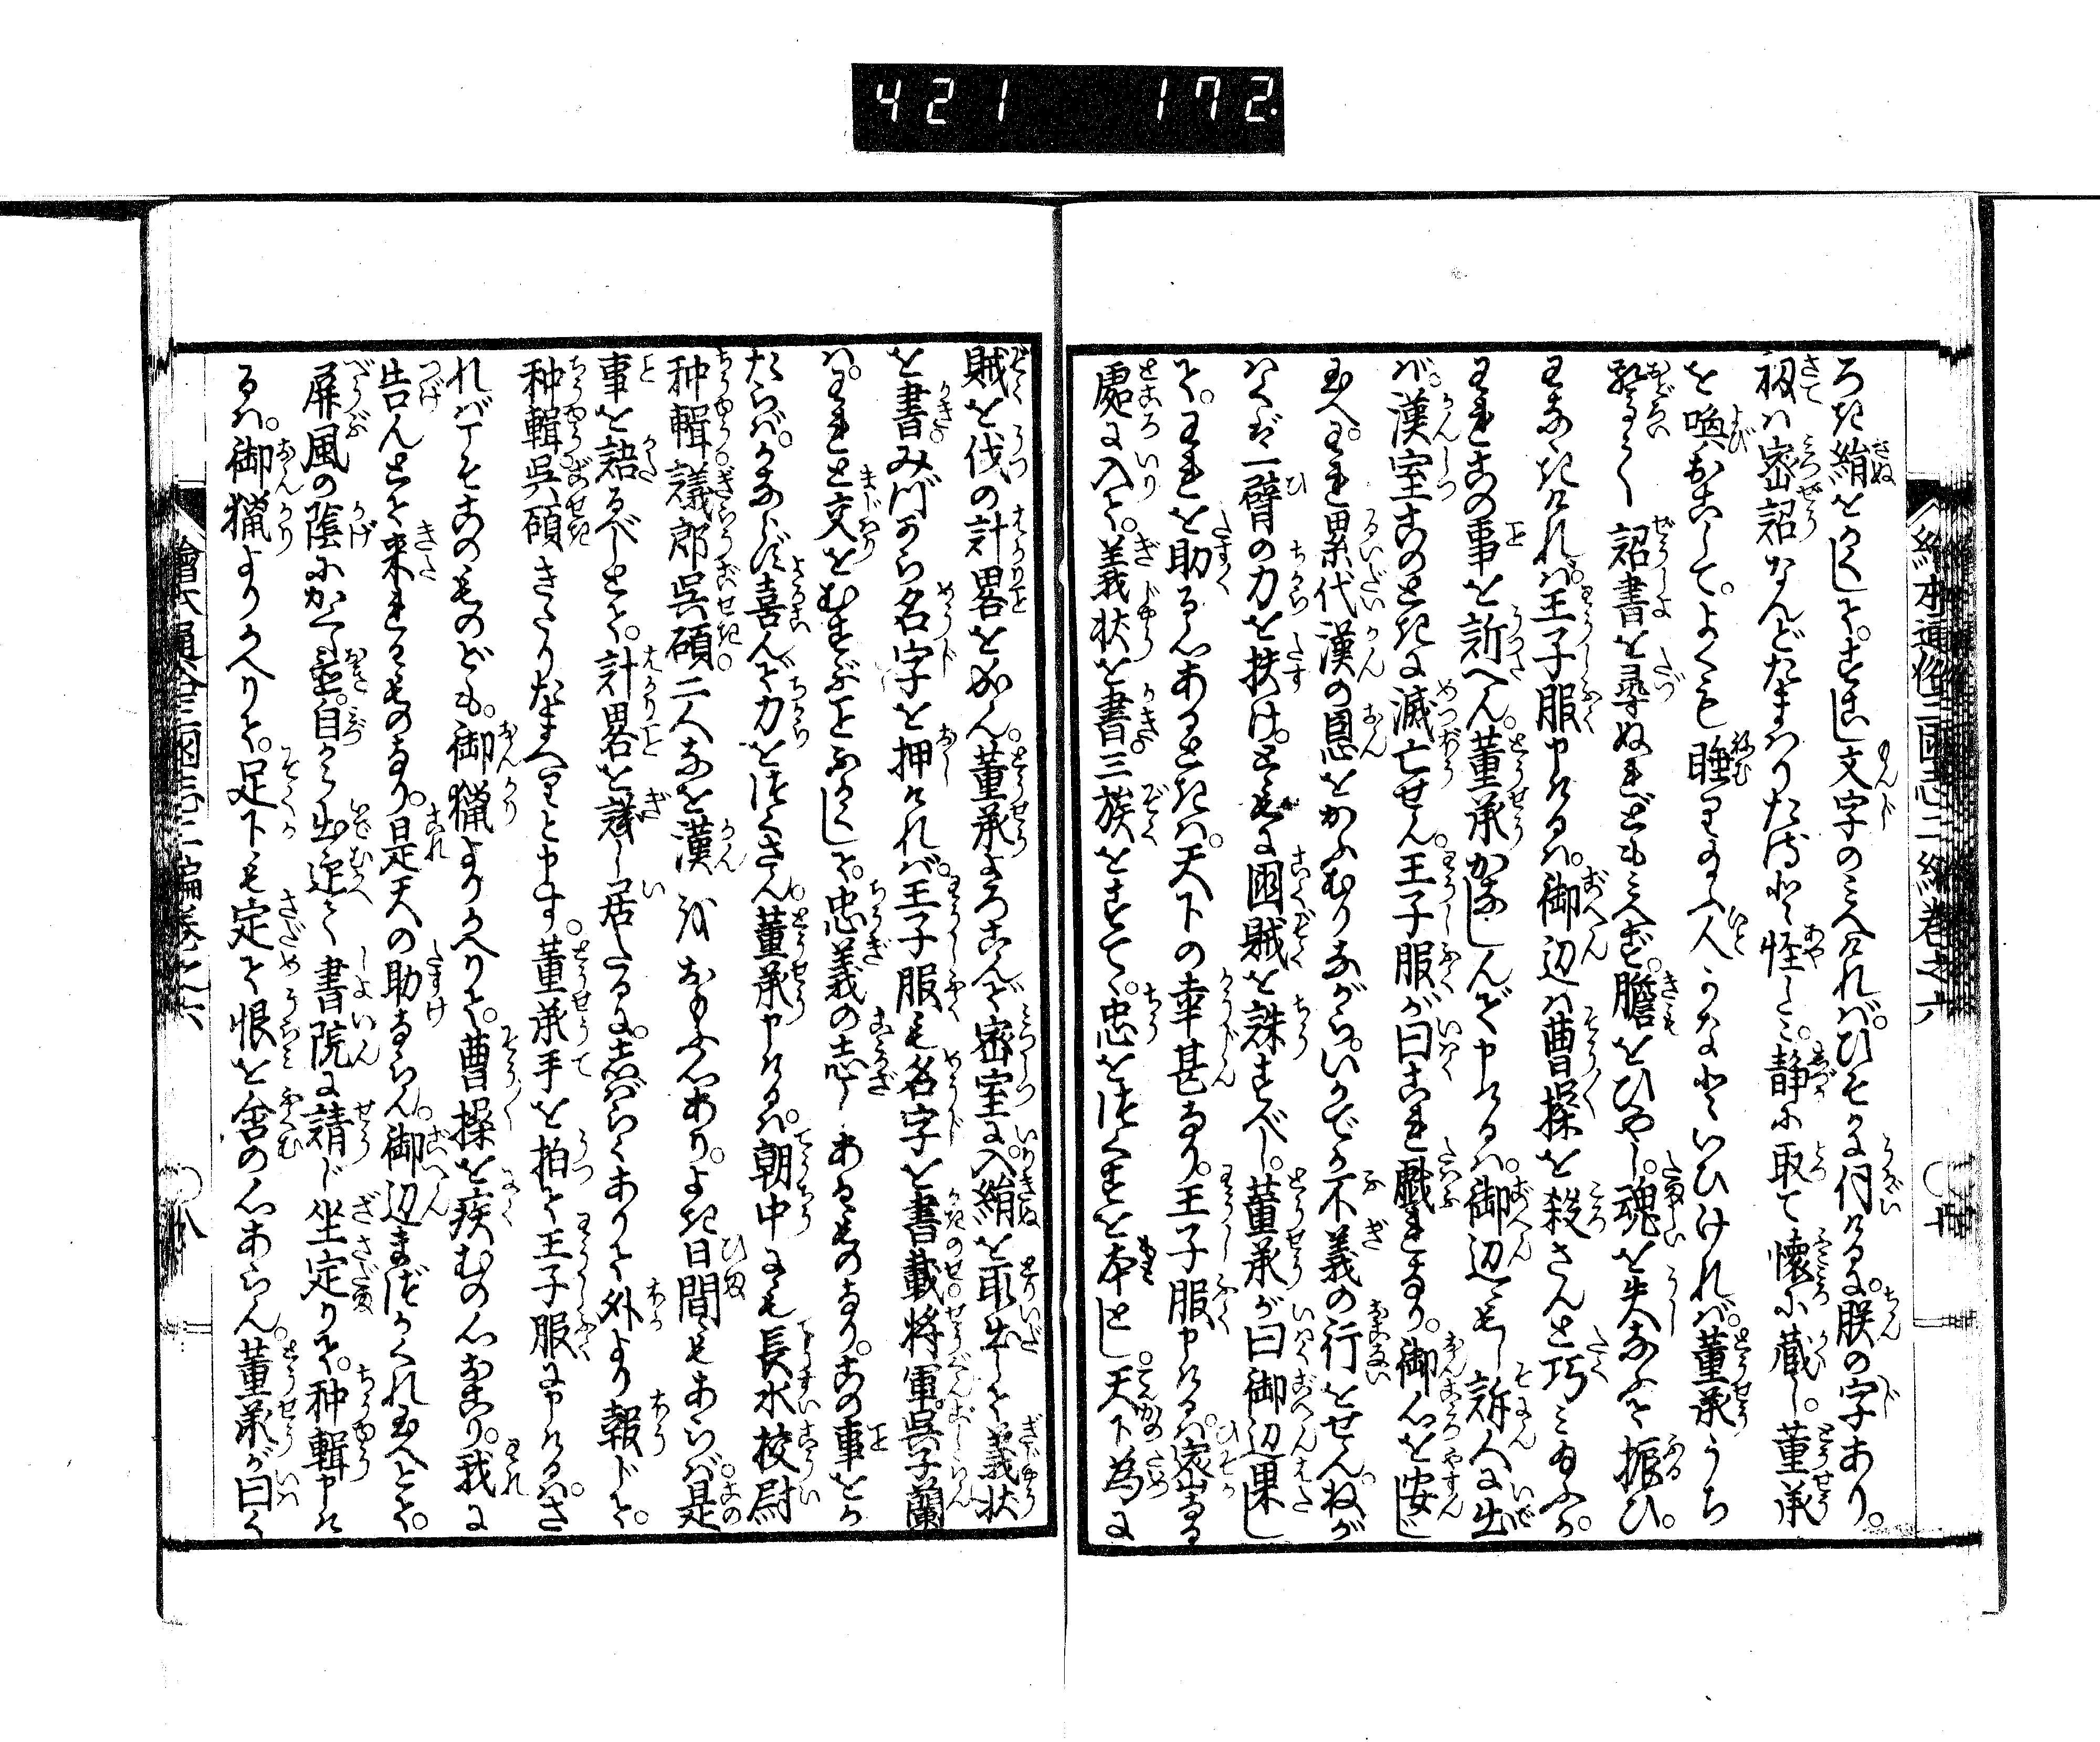 421 172.
繪本通俗三國志二編卷之六
ろき絹をかくして。すこし文字のみへければ。ひそかに伺けるに。朕の字あり。
扨は密詔なんどたまはりたるやと怪しみ。静に取て懐に蔵し。董承
を喚おこして。よくも睡り玉ふ人かなといひければ。董承うち
驚き 詔書を尋ぬれども見へず。膽をひやし。魂を失なふて振ひ
わなゝきければ。王子服申けるは。御辺は曹操を殺さんと巧み玉ふか。
われこの事を訴へん。董承かなしんで申けるは。御辺もし訴人に出
ば。漢室このときに滅亡せん。王子服が曰これ戯れなり。御心を安じ
玉へ。われ累代漢の恩をかふむりながら。いかでか不義の行をせん。ねが
はくは一臂の力を扶け。ともに国賊を誅すべし。董承が曰御辺果し
て。われを助る心あるときは。天下の幸甚なり。王子服申けるは。密なる
處に入て。義状を書。三族をすてゝ。忠をつくすを本とし。天下の為に
賊を伐の計畧をめぐらさん。董承よろこんで密室に入。絹を取出して義状
を書。みづから名字を押ければ。王子服も名字を書載。将軍呉子蘭
は。われと交をむすぶことふかくして。忠義の志しあるものなり。この事をか
たらば。かならず喜んで力をつくさん。董承申けるは。朝中にも長水校尉
种輯。議郎呉碩。二人ながら漢 をおもふ心あり。よき日間もあらば。是
事を語るべしとて。計畧を議し居たるに。しばらくありて外より報じて。
种輯呉碩きたりたまへりと申す。董承手を拍て王子服に申けるは。さ
ればこそこのものども。御猟よりかへりて。曹操を疾むの心おこり。我に
告んとて来れるものなり。是天の助ならん。御辺まづかくれ玉へとて。
屏風の陰にかくし置。自ら出迎て書院に請じ坐定りて。种輯申け
るは。御猟よりかへりて。足下も定て恨を含の心あらん。董承が曰く
繪本通俗三國志二編卷之六